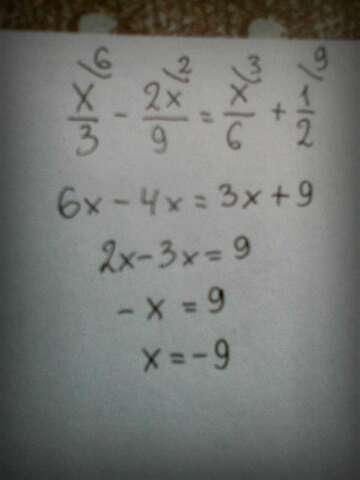 x/3 \6 - 2x/9 \2 = x/6 \3 + 1/2 \9
6x - 4x = 3x + 9
2x - 3x = 9
- x = 9
x = - 9